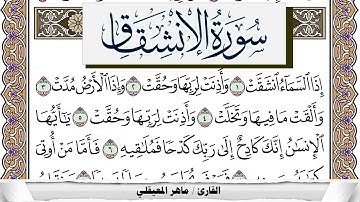 سورة الإنشقاق
إِذَا ٱلسَّمَآءُ ٱنشَقَّتۡ ١ وَأَذِنَتۡ لِرَبِّهَا وَحُقَّتۡ ٢ وَإِذَا ٱلۡأَرۡضُ مُدَّتۡ ٣
وَأَلۡقَتۡ مَا فِيهَا وَتَخَلَّتۡ ٤ وَأَذِنَتۡ لِرَبِّهَا وَحُقَّتۡ ٥ يَٰٓأَيُّهَا
ٱلۡإِنسَٰنُ إِنَّكَ كَادِحٌ إِلَىٰ رَبِّكَ كَدۡحًا فَمُلَٰقِيهِ ٦ فَأَمَّا مَنۡ أُوتِيَ
القارئ / ماهر المعيقلي